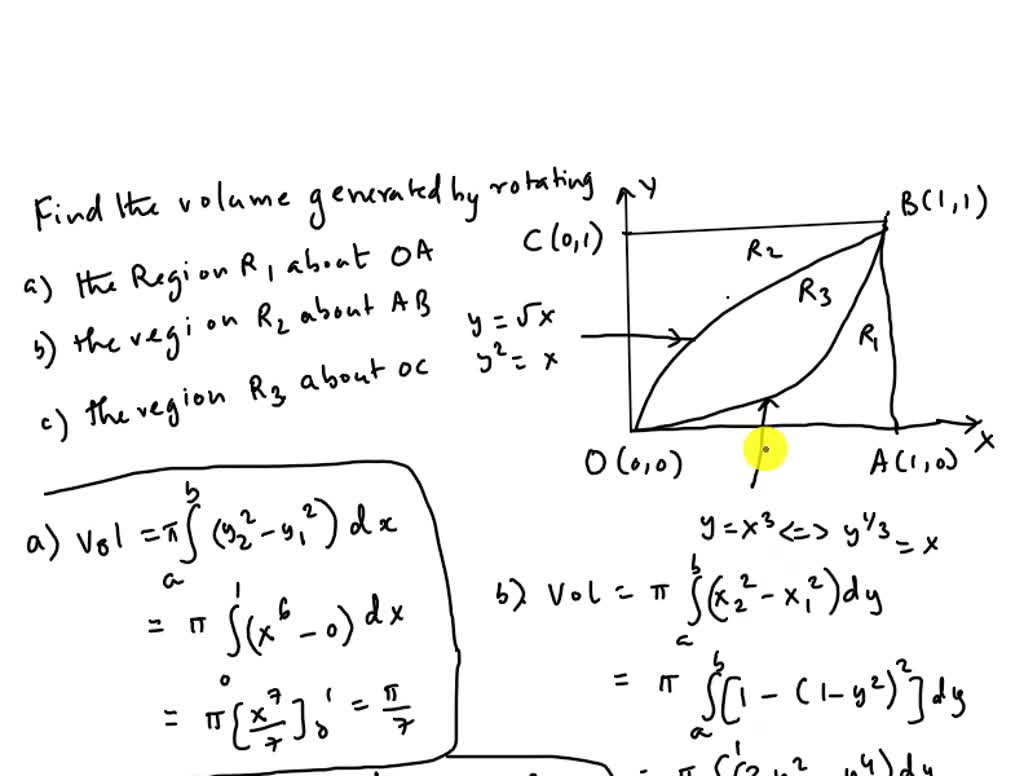 Find the volume generated by rotating
a) the Region R₁ about OA
b) the region R₂ about AB
c) the region R₃ about OC
Y
B(1,1)
C(0,1)
R₂
R₃
R₁
y = √x
y² = x
O(0,0)
A(1,0)
X
y = x³ <=> y^1/3 = x
a) Vol = π ∫ₐᵇ (y₂² - y₁²) dx
= π ∫₀¹ (x⁶ - 0) dx
= π [x⁷/7]₀¹ = π/7
b) Vol = π ∫ₐᵇ (x₂² - x₁²) dy
= π ∫ₐᵇ [1 - (1-y²)²] dy
= π ∫¹ (2y² - y⁴) dy